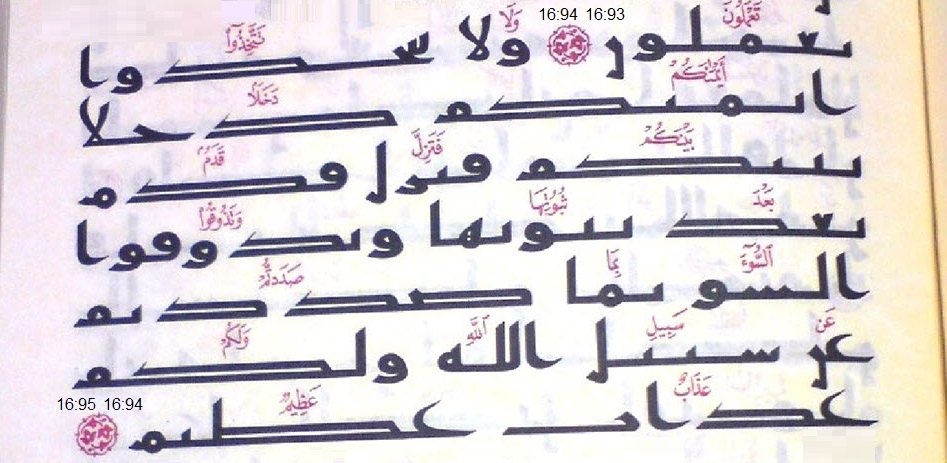 تَعْمَلُونَ 16:93 16:94 وَلَا تَتَّخِذُوٓا۟
تعملون ولا تتخذوا
أَيْمَٰنَكُمْ دَخَلًۢا
ايمنكم دخلا
بَيْنَكُمْ فَتَزِلَّ قَدَمٌۢ
بينكم فتزل قدم
بَعْدَ ثُبُوتِهَا وَتَذُوقُوا۟
بعد ثبوتها وتذوقوا
ٱلسُّوٓءَ بِمَا صَدَدتُّمْ
السو بما صددتم
عَن سَبِيلِ ٱللَّهِ وَلَكُمْ
عن سبيل الله ولكم
عَذَابٌ عَظِيمٌ
عذاب عظيم 16:94 16:95